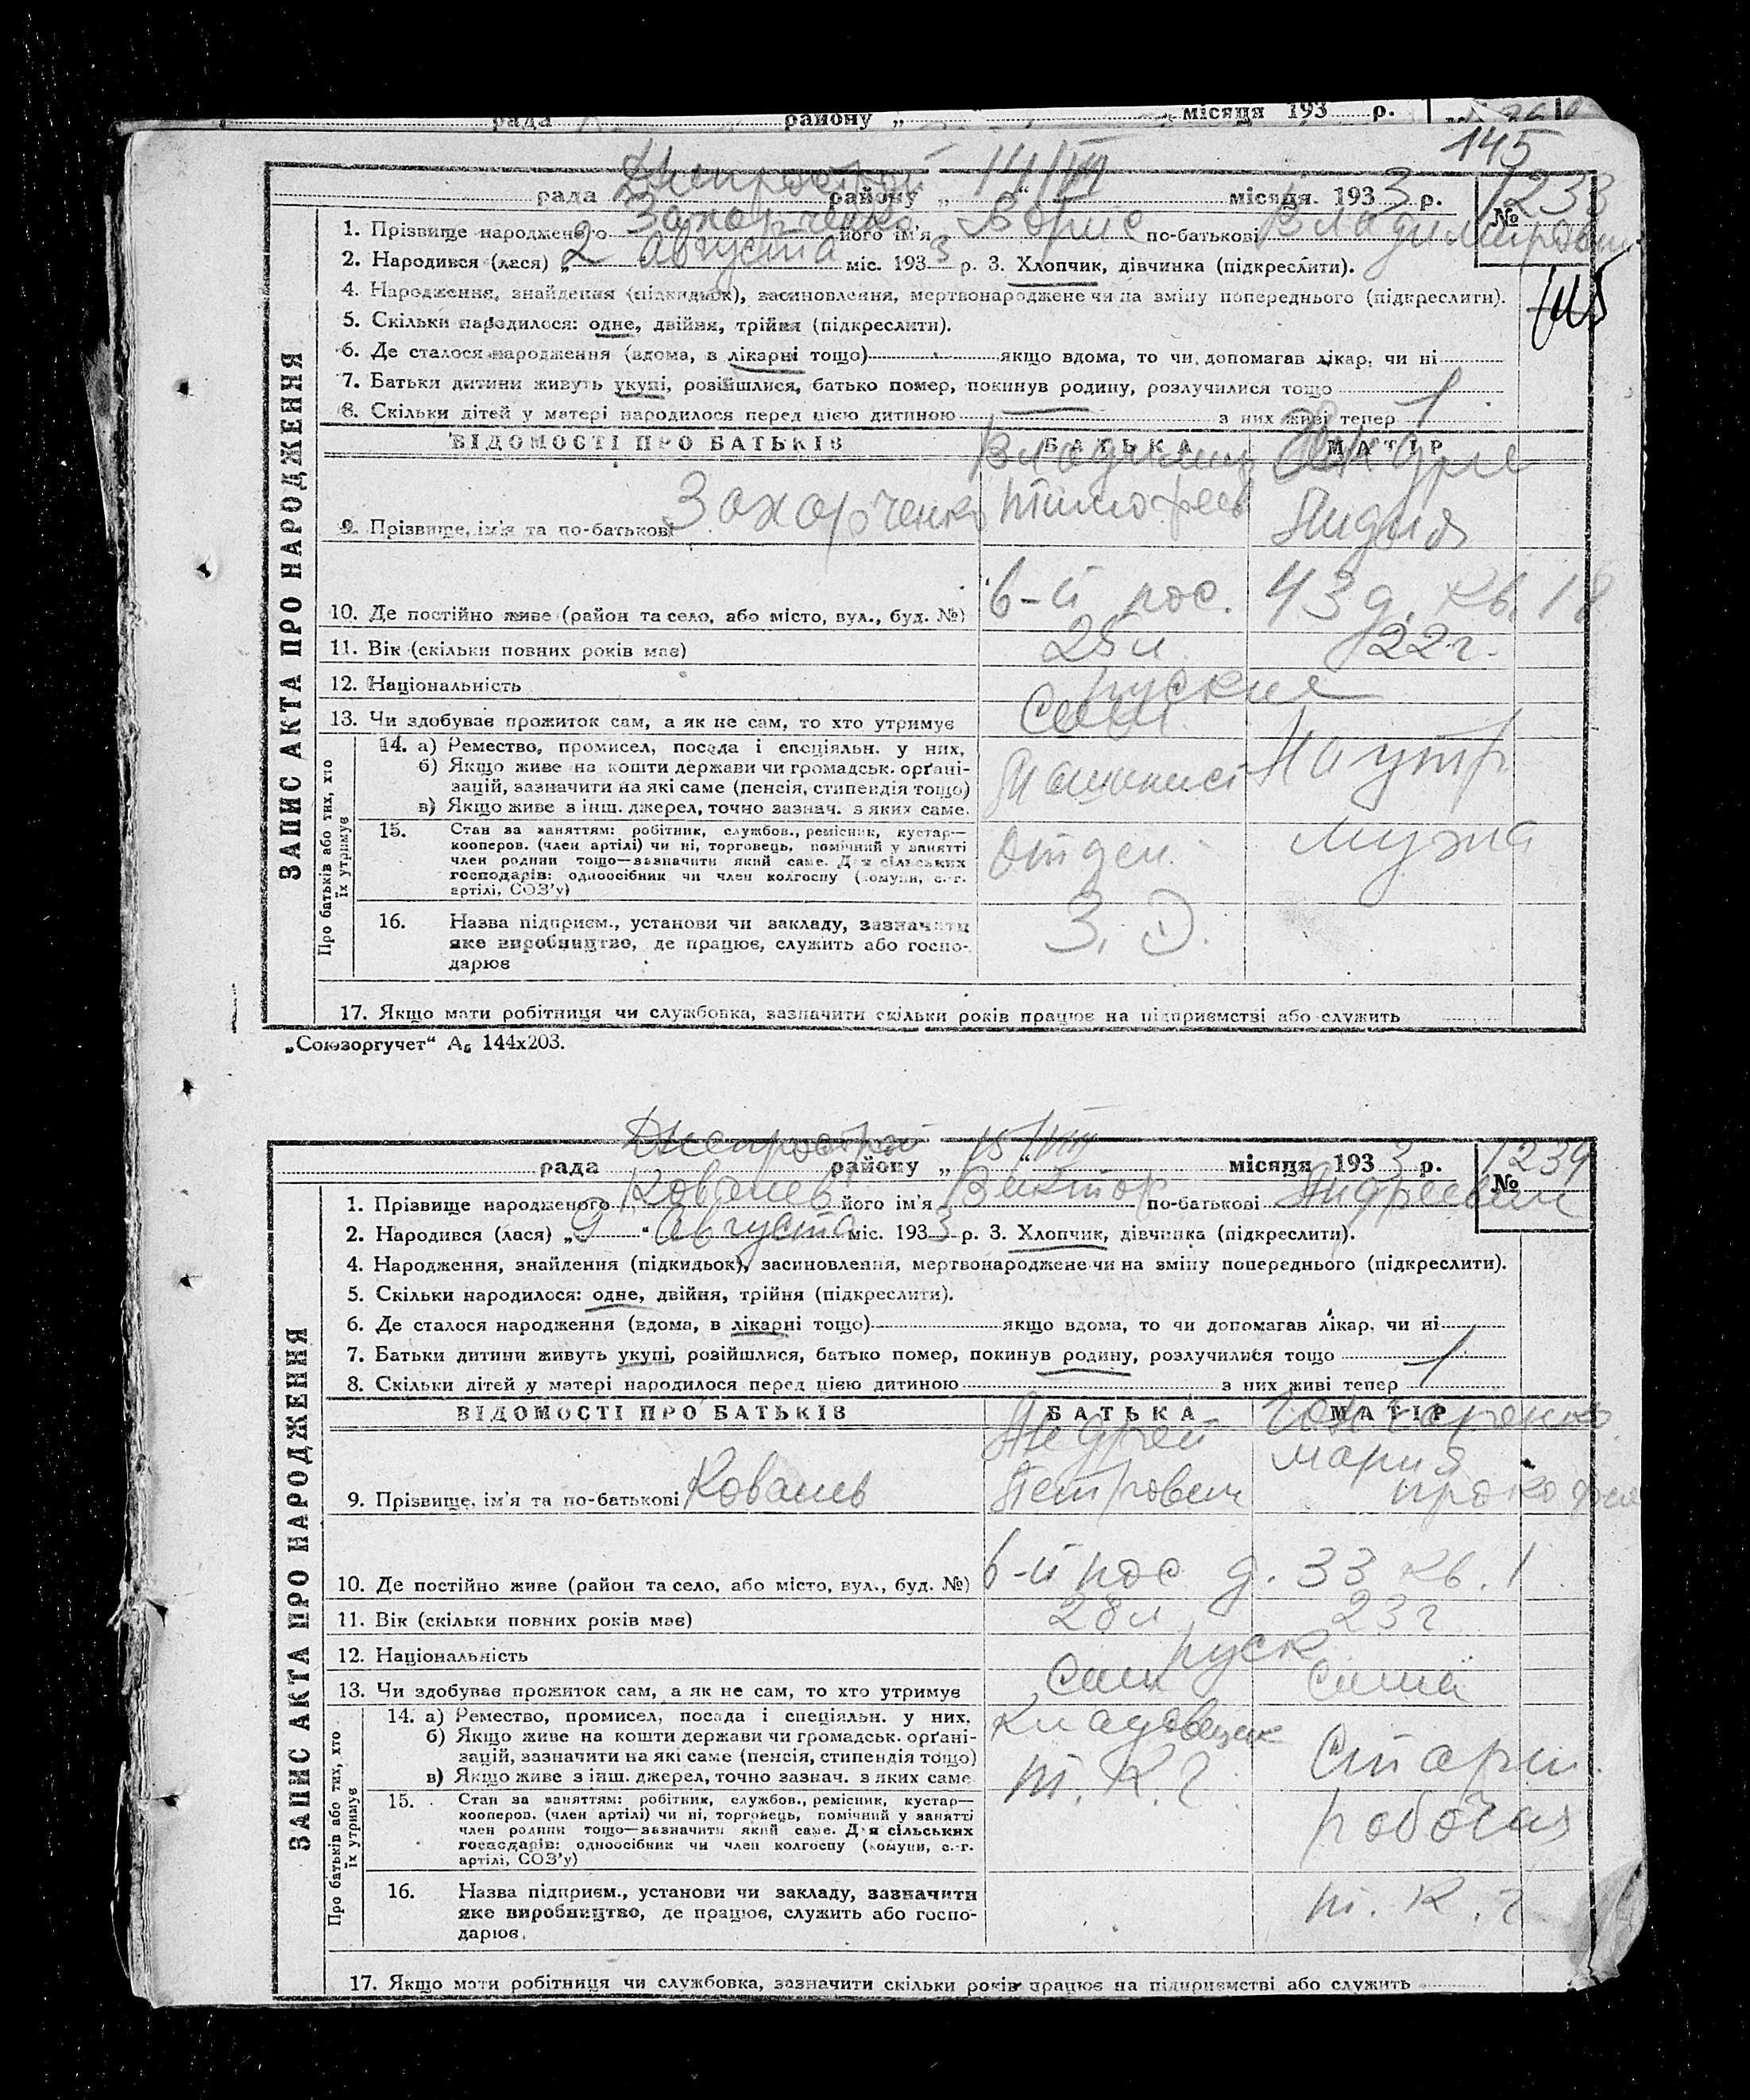 рада району „ місяця 193 р.
145
Днепрострой 14/VIII
рада району „ “ місяця 1933 р. № 1233
1. Прізвище народженого Захарченко його ім'я Борис по-батькові Владимирович
2. Народився (лася) „2 Августа міс. 1933 р. 3. Хлопчик, дівчинка (підкреслити).
4. Народження, знайдення (підкидьок), засиновлення, мертвонароджене чи на зміну попереднього (підкреслити).
145
5. Скільки народилося: одне, двійня, трійня (підкреслити).
6. Де сталося народження (вдома, в лікарні тощо) якщо вдома, то чи допомагав лікар, чи ні
7. Батьки дитини живуть укупі, розійшлися, батько помер, покинув родину, розлучилися тощо
8. Скільки дітей у матері народилося перед цією дитиною — з них живі тепер 1
ЗАПИС АКТА ПРО НАРОДЖЕННЯ
ВІДОМОСТІ ПРО БАТЬКІВ БАТЬКА МАТІР
Владимир
9. Прізвище, ім'я та по-батькові Захарченко Тимофеев Лидия
10. Де постійно живе (район та село, або місто, вул., буд. №) 6-й пос. 43 д. кв. 18
11. Вік (скільки повних років має) 25 л. 22 г.
12. Національність руские
13. Чи здобуває прожиток сам, а як не сам, то хто утримує Сам
Про батьків або тих, хто їх утримує
14. а) Ремество, промисел, посада і спеціяльн. у них.
б) Якщо живе на кошти держави чи громадськ. органі-
зацій, зазначити на які саме (пенсія, стипендія тощо)
в) Якщо живе з інш. джерел, точно зазнач. з яких саме.
На
15. Стан за заняттям: робітник, службов., ремісник, кустар—
кооперов. (член артілі) чи ні, торговець, помічний у занятті
член родини тощо—зазначити який саме. Для сільських
господарів: одноосібник чи член колгоспу (комуни, с.-г.
артілі, СОЗ'у)
мужа
16. Назва підприєм., установи чи закладу, зазначити
яке виробництво, де працює, служить або госпо-
дарює
17. Якщо мати робітниця чи службовка, зазначити скільки років працює на підприємстві або служить
„Союзоргучет“ А5 144х203.
Днепрострой 15/VIII
рада району „ “ місяця 1933 р. № 1234
1. Прізвище народженого Ковалев його ім'я Виктор по-батькові Андреевич
2. Народився (лася) „9“ Августа міс. 1933 р. 3. Хлопчик, дівчинка (підкреслити).
4. Народження, знайдення (підкидьок), засиновлення, мертвонароджене чи на зміну попереднього (підкреслити).
5. Скільки народилося: одне, двійня, трійня (підкреслити).
6. Де сталося народження (вдома, в лікарні тощо) якщо вдома, то чи допомагав лікар, чи ні
7. Батьки дитини живуть укупі, розійшлися, батько помер, покинув родину, розлучилися тощо
8. Скільки дітей у матері народилося перед цією дитиною — з них живі тепер 1
ЗАПИС АКТА ПРО НАРОДЖЕННЯ
ВІДОМОСТІ ПРО БАТЬКІВ БАТЬКА МАТІР
Андрей Гончаренко
Мария
9. Прізвище, ім'я та по-батькові Ковалев Петрович
10. Де постійно живе (район та село, або місто, вул., буд. №) 6-й пос д. 33 кв. 1
11. Вік (скільки повних років має) 28 л 23 г
12. Національність руск
13. Чи здобуває прожиток сам, а як не сам, то хто утримує Сам сама
Про батьків або тих, хто їх утримує
14. а) Ремество, промисел, посада і спеціяльн. у них. Кладовщик
б) Якщо живе на кошти держави чи громадськ. органі-
зацій, зазначити на які саме (пенсія, стипендія тощо)
в) Якщо живе з інш. джерел, точно зазнач. з яких саме
т. К. г.
15. Стан за заняттям: робітник, службов., ремісник, кустар—
кооперов. (член артілі) чи ні, торговець, помічний у занятті
член родини тощо—зазначити який саме. Для сільських
господарів: одноосібник чи член колгоспу (комуни, с.-г.
артілі, СОЗ'у)
рабочая
16. Назва підприєм., установи чи закладу, зазначити
яке виробництво, де працює, служить або госпо-
дарює.
т. К. г
17. Якщо мати робітниця чи службовка, зазначити скільки років працює на підприємстві або служить